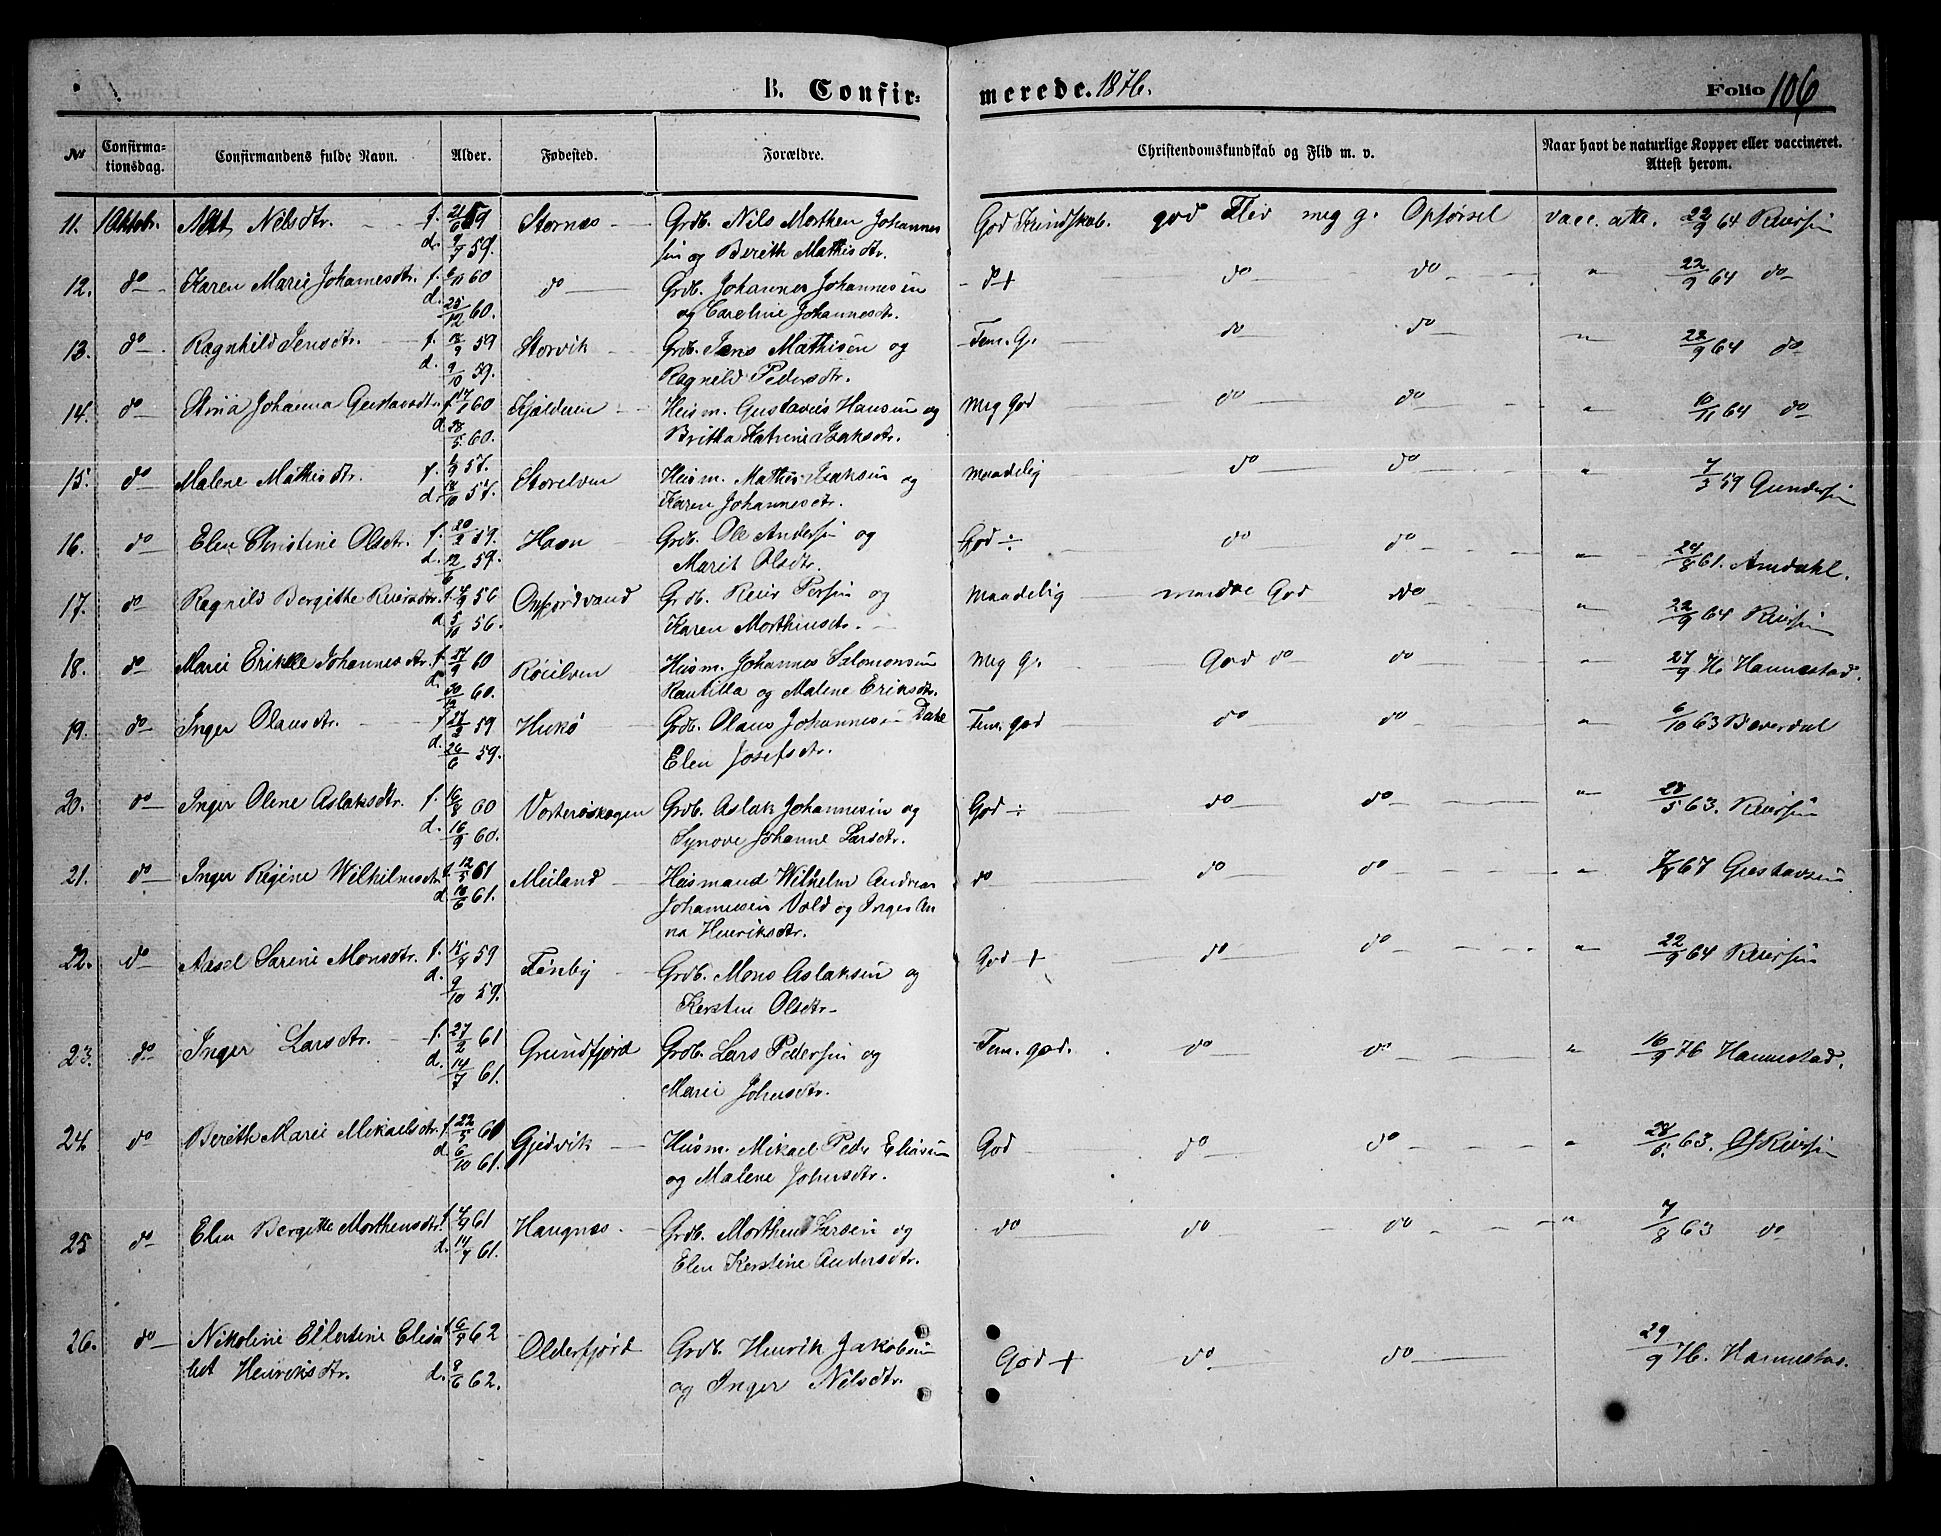 B. Confirmerede. 1876. Folio 106
No Confirmationsdag. Confirmandens fulde Navn. Alder. Fødested. Forældre. Christendomskundskab og Flid m. v. Naar havt de naturlige Kopper eller vaccineret. Attest herom.
11. 1 Oktobr. Nilsdtr. f. 21/6 59 Stornæs Grdb. Nils Morthen Johannes God Kundskab. god Flid meg g. Opførsel vacc. att. 22/9 64 Reiersen
d. 9/7 59. sen og Bereth Mathisdtr.
12. do Karen Marie Johannesdtr. f. 60 do Grdb. Johannes Johannesen do + do do " 22/9 64 do
d. 25/12 60. og Caroline Johannesdtr.
13. do Ragnhild Jensdtr. f. 59 Storvik Grdb. Jens Mathisen og Tem. G. do do " 22/9 64 do
d. 9/10 59. Ragnild Pedersdtr.
14. do Johanna Gustavsdtr. f. 60 Kjelderen Husm. Gustavus Hansen og Meg God do do " 10/11 64 do
d. 28/5 60. Britha Katrine Isaksdtr.
15. do Malene Mathisdtr. f. 57. Storelven Husm. Mathis Isaksen og Maadelig do do " 7/3 59 Gundersen
d. 18/10 57. Karen Johannesdtr.
16. do Elen Christine Olsdtr. f. 20/2 59. Havn Grdb. Ole Andersen og God ÷ do do " 24/8 61. Amdahl.
d. 59. Marit Olsdtr.
17. do Ragnild Bergithe Reiersdtr. f. 56 Oxfjordvand Grdb. Reier Persen og Maadelig mindre God do " 22/9 64 Reiersen
d. 5/10 56. Karen Morthensdtr.
18. do Marie Erikke Johannesdtr. f. 27/9 60 Røielven Husm. Johannes Salomonsen Meg G. God do do 27/9 76 Hannestad.
d. 30/12 60. Rautilla og Malene Eriksdtr.
19. do Inger Olausdtr. f. 27/2 59 Hukø Grdb. Olaus Johannesen Dahl Tem. god do do " 6/10 63 Bæverdal
d. 26/6 59. Elen Josefsdtr.
20. do Inger Olene Aslaksdtr. f. 16/8 60 Vorterøskagen Grdb. Aslak Johannesen og God ÷ do do " 28/5 63. Reiersen
d. 16/9 60. Synove Johanne Larsdtr.
21. do Inger Regine Wilhelmsdtr. f. 12/5 61 Meiland Husmand Wilhelm Andreas do do do " 67 Gustavsen
d. 18/6 61. Johannesen Vold og Inger An
na Henriksdtr.
22. do Aasel Sarine Monsdtr. f. 15/8 59 Tønby Grdb. Mons Aslaksen og God + do do " 22/9 64 Reiersen
d. 9/10 59. Kersten Olsdtr.
23. do Inger Larsdtr. f. 27/2 61 Grundfjord Grdb. Lars Pedersen og Tem. god. do do " 16/9 76 Hannestad.
d. 14/7 61. Marie Johnsdtr.
24. do Bereth Marie Mikaelsdtr. f. 22/5 61 Gjedvik Husm. Mikael Peder Eliasen God do do " 63. Reiersen
d. 6/10 61. og Malene Johnsdtr.
25 do Elen Bergitte Morthensdtr. f. 61 Haugnæs Grdb. Morthen Larsen og do do do " 7/8 63 do
d. 14/7 61. Elen Kerstine Andersdtr.
26. do Nikoline Ellertine Elisa f. 62 Olderfjord Grdb. Henrik Jakobsen God + do do 29/9 76. Hannestad.
bet Henriksdtr. d. 8/6 62. og Inger Nilsdtr.